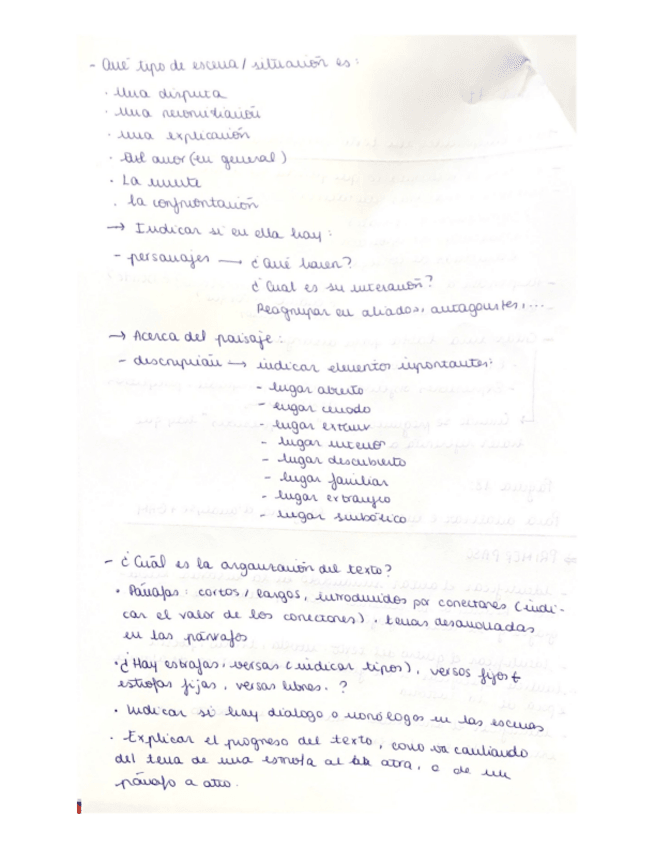 - Qué tipo de escena / situación es:
· Una disputa
· Una reconciliación
· una explicación
· Del amor (en general)
· La muerte
· la confrontación
→ Indicar si en ella hay:
- personajes → ¿Qué hacen?
¿Cual es su interacción?
Reagrupar en aliados, antagonistas, ...
→ Acerca del paisaje:
- descripción → indicar elementos importantes:
- lugar abierto
- lugar cerrado
- lugar exterior
- lugar interior
- lugar descubierto
- lugar familiar
- lugar extranjero
- lugar simbólico
- ¿Cuál es la organización del texto?
· Párrafos: cortos / largos, introducidos por conectores (indi-
car el valor de los conectores). temas desarrollados
en los párrafos
· ¿Hay estrofas, versos (indicar tipos), versos fijos +
estrofas fijas, versos libres. ?
· Indicar si hay diálogo o monólogos en las escenas
· Explicar el progreso del texto, como va cambiando
del tema de una estrofa al otra, o de un
párrafo a otro.